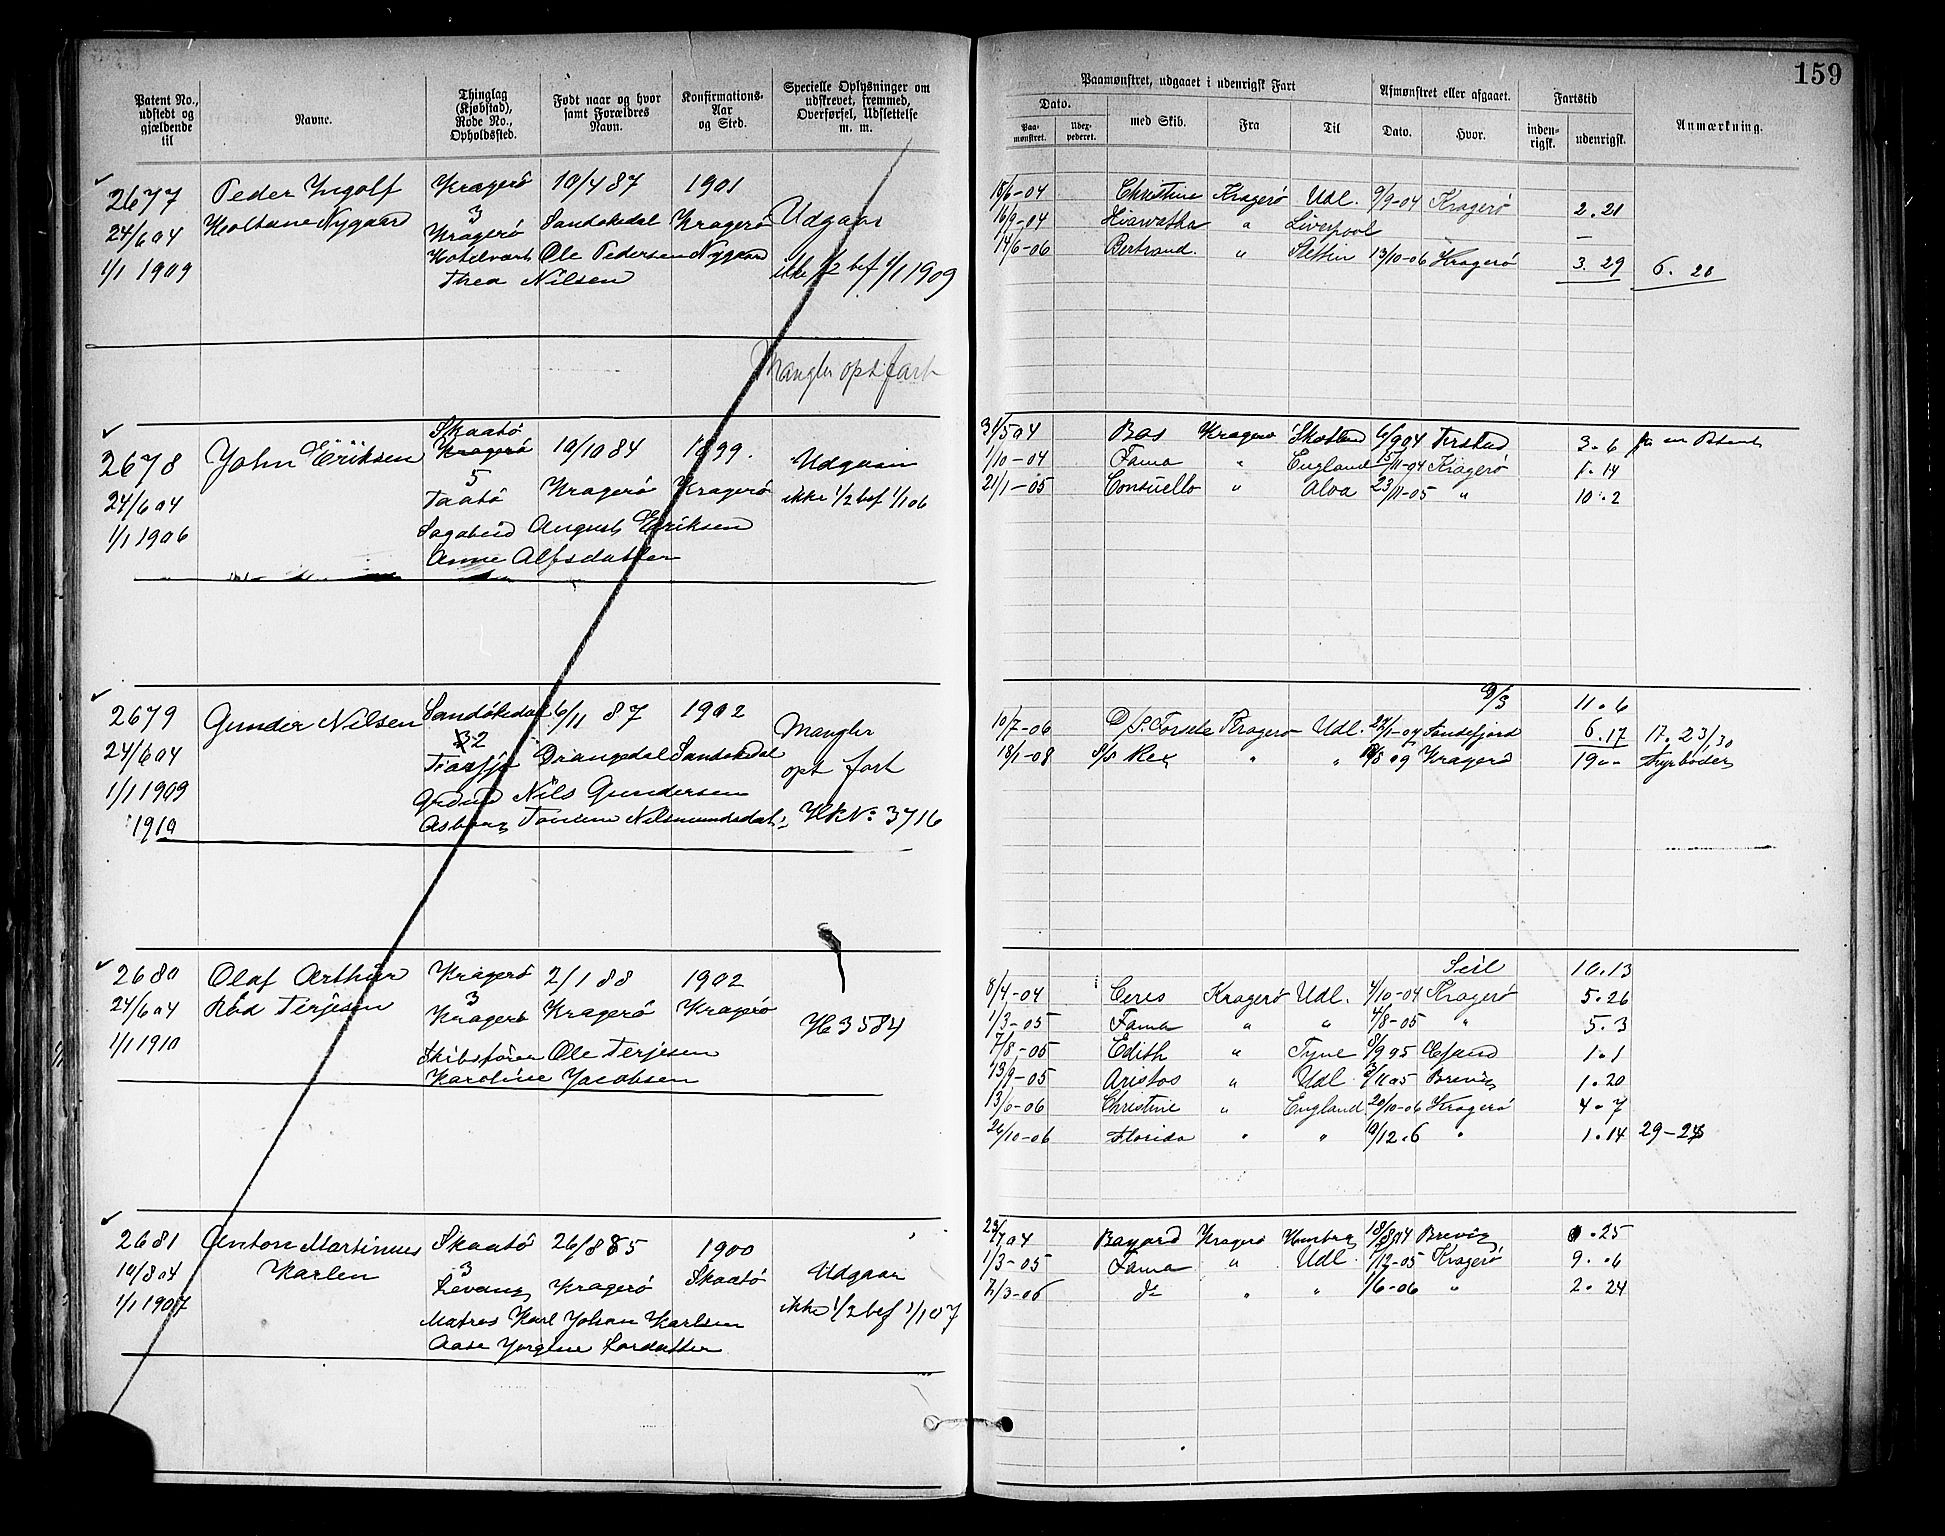 159
Patent No., udstedt og gjældende til
Navne.
Thinglag (Kjøbstad), Rode No., Opholdssted.
Født naar og hvor samt Forældres Navn.
Konfirmations-Aar og Sted.
Specielle Oplysninger om udskrevet, fremmed, Overførsel, Udslettelse m. m.
Paamønstret, udgaaet i udenrigsk Fart
Afmønstret eller afgaaet.
Fartstid
Anmærkning.
Dato.
med Skib.
Fra
Til
Dato.
Hvor.
inden-rigsk.
udenrigsk.
Paa-mønstret.
2677 Peder Yngolf Kragerö 10/4 87 1901
24/6 04 Holtane Nygaar 3 Kragerö Sandökedal Kragerö Udgaar
1/1 1909 Ole Pedersen Nygaard ikke 1/2 bef 1/1 1909
Thea Nilsen
18/6-04 Christine Kragerö Udl. 9/9-04 Kragerö 2.21
16/9-04 Hiawatha " Liverpool –
14/6-06 Bertrand. " Stettin 13/10-06 Kragerö 3.29 6.20
Mangler opt fart
2678 John Eriksen Skaatö Kragerö 10/10 84 1899.
24/6 04 5 Taatö Kragerö Kragerö Udgaar
1/1 1906 August Eriksen ikke 1/2 bef 1/1 06
Anne Alfsdatter
31/5 04 Bas Kragerö Skotland 6/9 04 3.6
1/10-04 Fama " England 15/11-04 Kragerö 1.14
21/1-05 Consuello " Aloa 23/11-05 " 10.2
2679 Gunder Nilsen Sandökedal 6/11 87 1902 Mangler
24/6 04 32 Drangedal Sandökedal opt fart
1/1 1909 Nils Gundersen
1910 No 3716
11.6
10/7-06 Kragerö Udl. Sandefjord 6.17 17.23/30
18/1-08 S/S Rex " " Kragerö 19 "- fyrböder
2680 Olaf Arthur Kragerö 2/1 88 1902
24/6 04 Röd Terjesen 3 Kragerö Kragerö Kragerö
1/1 1910 Skibsfører Ole Terjesen 3584
Karoline Jacobsen
Seil 10.13
8/4-04 Ceres Kragerö Udl. 4/10-04 Kragerö 5.26
1/3-05 Fama " " 4/8-05 " 5.3
7/8-05 Edith " Tyne 8/9 05 1.1
13/9-05 Aristos " Udl. 3/11 05 Brevig 1.20
13/6-06 Christine " England 20/10-06 Kragerö 4.7
26/10-06 Florida " " 10/12.6 " 1.14 29-24
2681 Anton Martinius Skaatö 26/8 85 1900
10/8 04 Karlen 3 Levang Kragerö Skaatö Udgaar
1/1 1907 Matros Karl Johan Karlsen ikke 1/2 bef 1/1 07
Aase Jorgine Larsdatter
23/7 04 Bayard Kragerö Hamburg 18/8 04 Brevig 0.25
1/3-05 Fama " Udl. 1/12-05 Kragerö 9.06
2/3-06 do " " 1/6-06 " 2.24